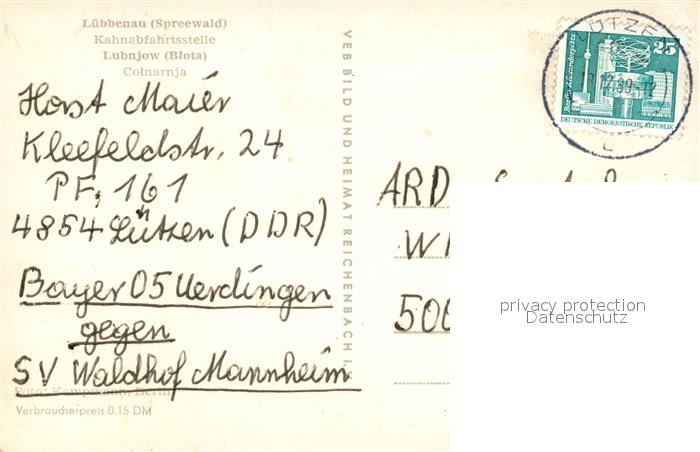 Lübbenau (Spreewald)
Kahnabfahrtsstelle
Lubnjow (Błota)
Colnarnja
Horst Maier
Kleefeldstr. 24
PF, 161
4854 Lützen (DDR)
Bayer 05 Uerdingen
gegen
SV Waldhof Mannheim
Foto: Kampmann, Berlin
Verbraucherpreis 0.15 DM
VEB BILD UND HEIMAT REICHENBACH I.
25
Berlin, Alexanderplatz
DEUTSCHE DEMOKRATISCHE REPUBLIK
LÜTZEN
13.12.89-12
c
ARD
500
privacy protection
Datenschutz